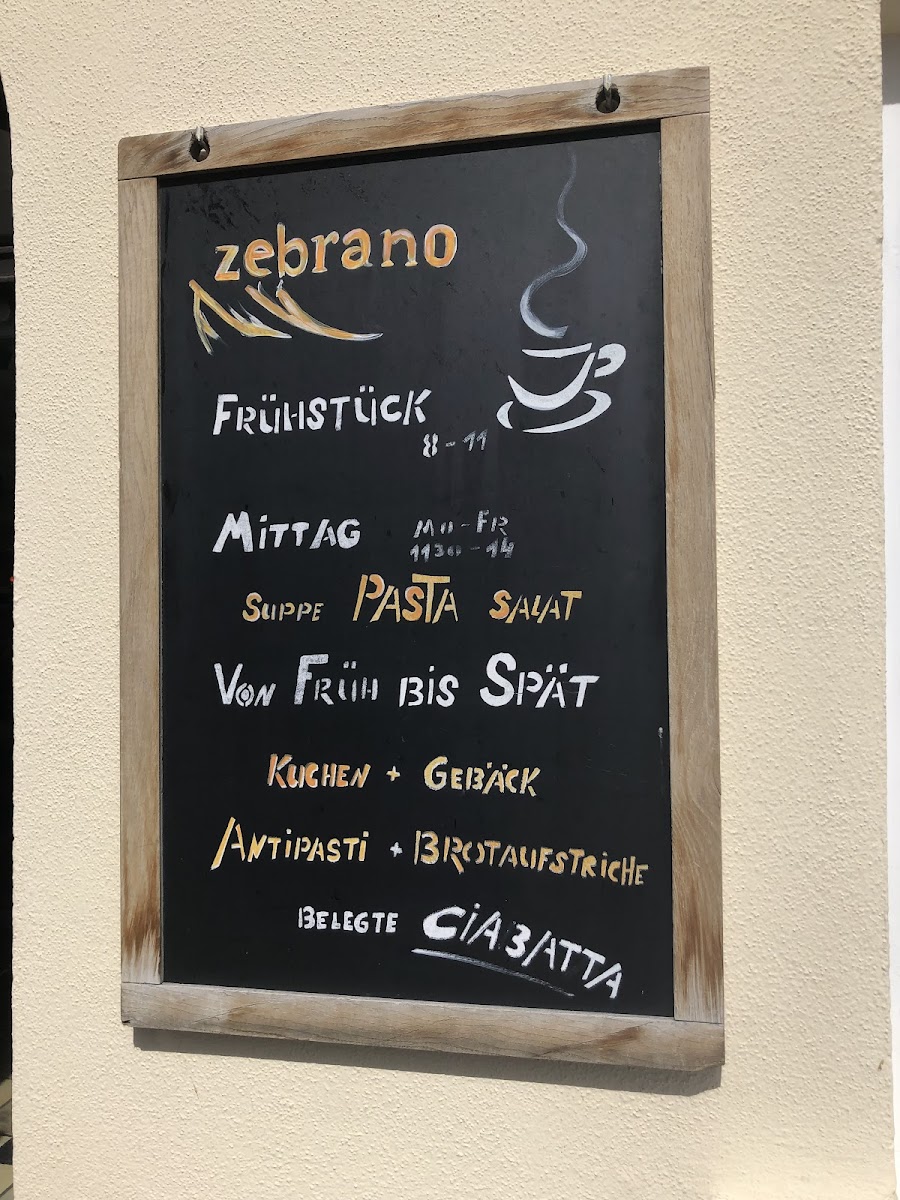 zebrano
FRÜHSTÜCK
8-11
MiTTAG MO-FR
1130-14
SUPPE PASTA SALAT
VON FRÜH BiS SPÄT
KUCHEN + GEBÄCK
ANTiPASTi + BROTAUFSTRICHE
BELEGTE CiABATTA